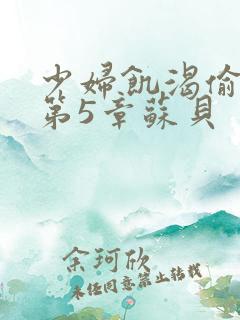 少婦飢渴偷
第5章蘇貝
余珂欣
未经同意禁止转载